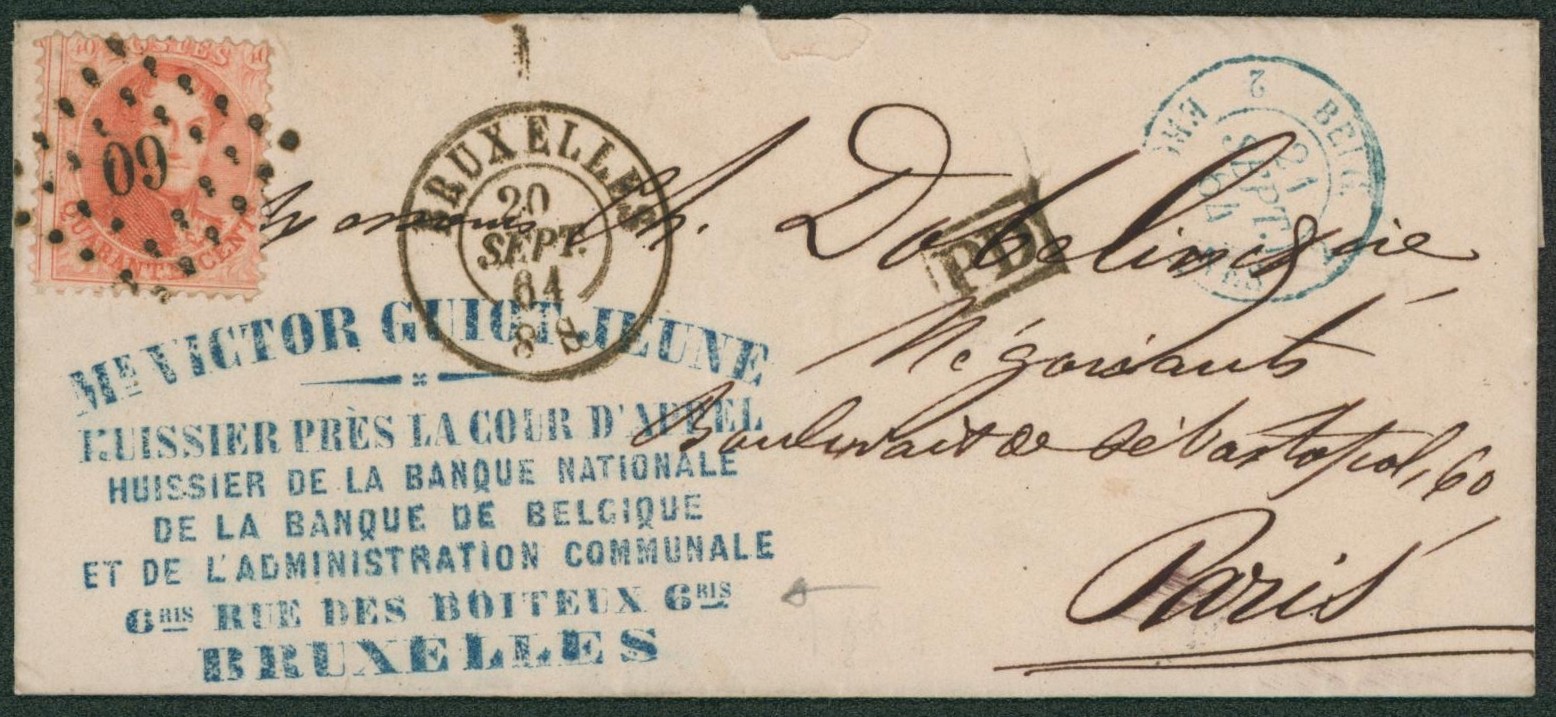 40 POSTES 40
60
QUARANTE CENTIMES
BRUXELLES
20
SEPT.
64
8 S
BELG.
2
21
SEPT.
64
PD
Dobelingie
Négociants
Boulevart de Sébastopol, 60
Paris
ME VICTOR GUIOT JEUNE
HUISSIER PRÈS LA COUR D'APPEL
HUISSIER DE LA BANQUE NATIONALE
DE LA BANQUE DE BELGIQUE
ET DE L'ADMINISTRATION COMMUNALE
6BIS RUE DES BOITEUX 6BIS
BRUXELLES